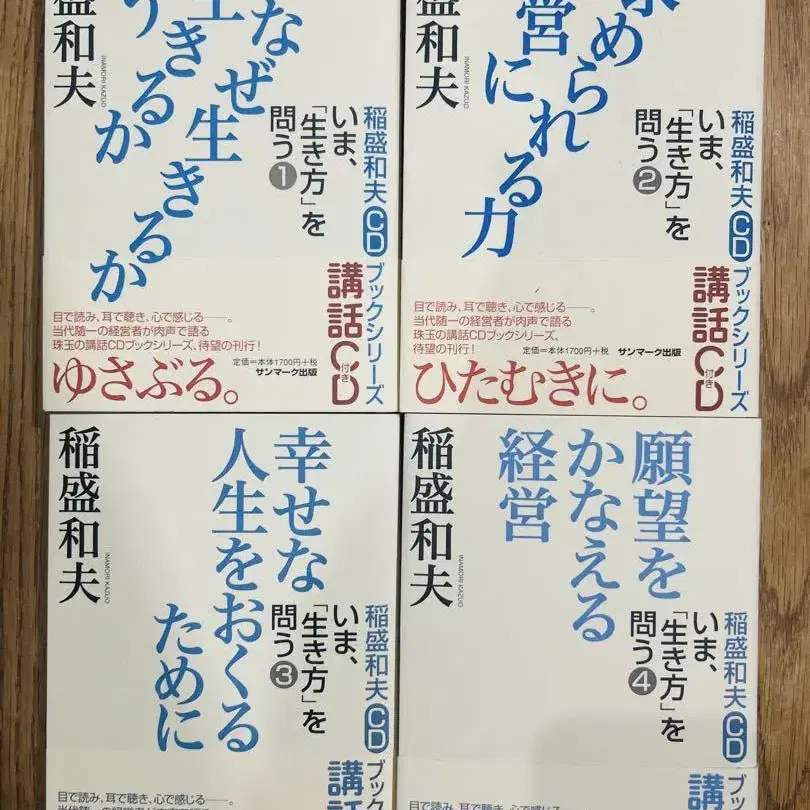 なぜ生きるか
う生きるか
盛和夫
INAMORI KAZUO
稲盛和夫CDブックシリーズ
いま、
「生き方」を
問う1
講話CD
付き
目で読み、耳で聴き、心で感じる――。
当代随一の経営者が肉声で語る
珠玉の講話CDブックシリーズ、
待望の刊行!
定価=本体1700円+税
サンマーク出版
ゆさぶる。
営に
求められる力
盛和夫
INAMORI KAZUO
稲盛和夫CDブックシリーズ
いま、
「生き方」を
問う2
講話CD
付き
目で読み、耳で聴き、心で感じる――。
当代随一の経営者が肉声で語る
珠玉の講話CDブックシリーズ、
待望の刊行!
定価=本体1700円+税
サンマーク出版
ひたむきに。
幸せな
人生をおくる
ために
稲盛和夫
INAMORI KAZUO
稲盛和夫CDブック
いま、
「生き方」を
問う3
講話
目で読み、耳で聴き、心で感じる――。
願望を
かなえる
経営
稲盛和夫
INAMORI KAZUO
稲盛和夫CDブッ
いま、
「生き方」を
問う4
講